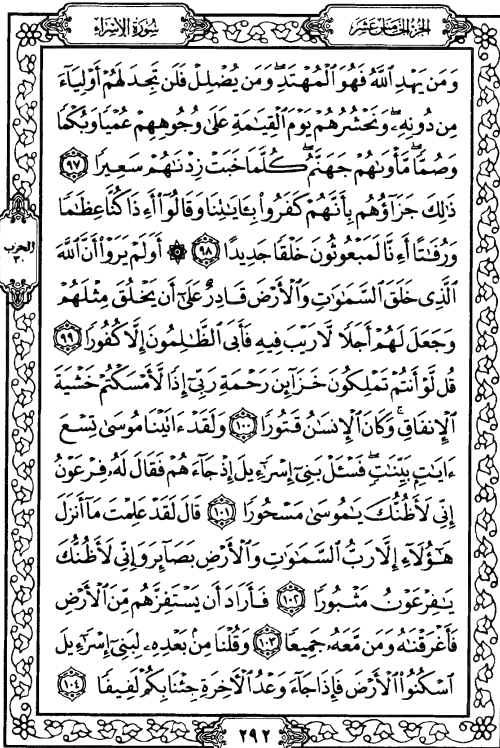 سُورَةُ الإِسْرَاءِ
الجُزْءُ الخَامِسَ عَشَرَ
وَمَن يَهْدِ ٱللَّهُ فَهُوَ ٱلْمُهْتَدِ ۖ وَمَن يُضْلِلْ فَلَن تَجِدَ لَهُمْ أَوْلِيَآءَ
مِن دُونِهِۦ ۖ وَنَحْشُرُهُمْ يَوْمَ ٱلْقِيَٰمَةِ عَلَىٰ وُجُوهِهِمْ عُمْيًا وَبُكْمًا
وَصُمًّا ۖ مَّأْوَىٰهُمْ جَهَنَّمُ ۖ كُلَّمَا خَبَتْ زِدْنَٰهُمْ سَعِيرًا ٩٧
ذَٰلِكَ جَزَآؤُهُم بِأَنَّهُمْ كَفَرُوا۟ بِـَٔايَٰتِنَا وَقَالُوٓا۟ أَءِذَا كُنَّا عِظَٰمًا
وَرُفَٰتًا أَءِنَّا لَمَبْعُوثُونَ خَلْقًا جَدِيدًا ٩٨ ۞ أَوَلَمْ يَرَوْا۟ أَنَّ ٱللَّهَ
ٱلَّذِى خَلَقَ ٱلسَّمَٰوَٰتِ وَٱلْأَرْضَ قَادِرٌ عَلَىٰٓ أَن يَخْلُقَ مِثْلَهُمْ
وَجَعَلَ لَهُمْ أَجَلًا لَّا رَيْبَ فِيهِ فَأَبَى ٱلظَّٰلِمُونَ إِلَّا كُفُورًا ٩٩
قُل لَّوْ أَنتُمْ تَمْلِكُونَ خَزَآئِنَ رَحْمَةِ رَبِّىٓ إِذًا لَّأَمْسَكْتُمْ خَشْيَةَ
ٱلْإِنفَاقِ ۚ وَكَانَ ٱلْإِنسَٰنُ قَتُورًا ١٠٠ وَلَقَدْ ءَاتَيْنَا مُوسَىٰ تِسْعَ
ءَايَٰتٍۭ بَيِّنَٰتٍ ۖ فَسْـَٔلْ بَنِىٓ إِسْرَٰٓءِيلَ إِذْ جَآءَهُمْ فَقَالَ لَهُۥ فِرْعَوْنُ
إِنِّى لَأَظُنُّكَ يَٰمُوسَىٰ مَسْحُورًا ١٠١ قَالَ لَقَدْ عَلِمْتَ مَآ أَنزَلَ
هَٰٓؤُلَآءِ إِلَّا رَبُّ ٱلسَّمَٰوَٰتِ وَٱلْأَرْضِ بَصَآئِرَ وَإِنِّى لَأَظُنُّكَ
يَٰفِرْعَوْنُ مَثْبُورًا ١٠٢ فَأَرَادَ أَن يَسْتَفِزَّهُم مِّنَ ٱلْأَرْضِ
فَأَغْرَقْنَٰهُ وَمَن مَّعَهُۥ جَمِيعًا ١٠٣ وَقُلْنَا مِنۢ بَعْدِهِۦ لِبَنِىٓ إِسْرَٰٓءِيلَ
ٱسْكُنُوا۟ ٱلْأَرْضَ فَإِذَا جَآءَ وَعْدُ ٱلْءَاخِرَةِ جِئْنَا بِكُمْ لَفِيفًا ١٠٤
الحزب
٣٠
٢٩٢